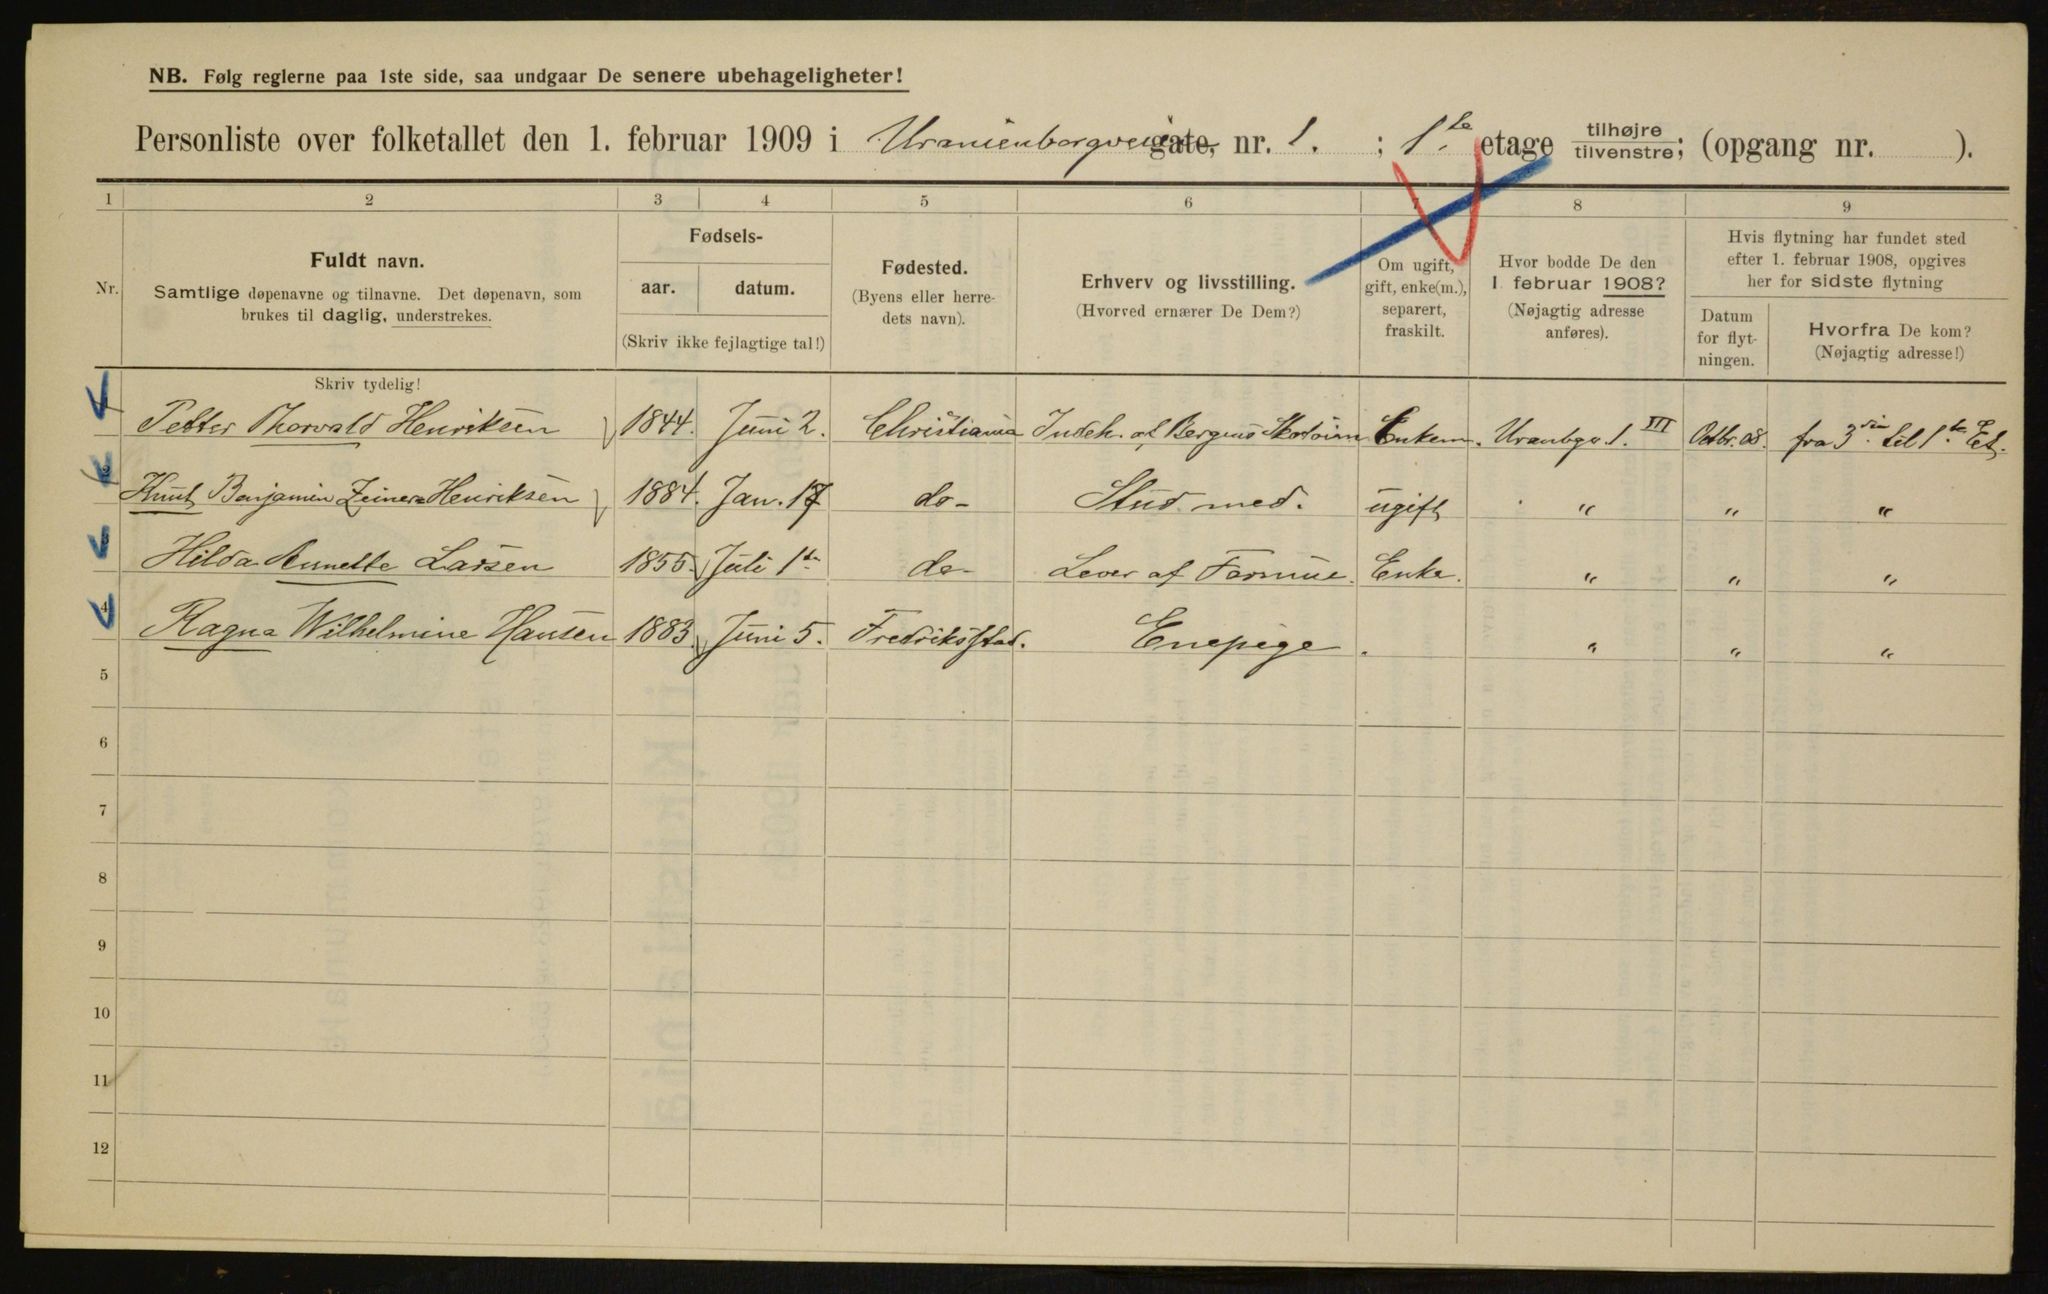 NB. Følg reglerne paa 1ste side, saa undgaar De senere ubehageligheter!
Personliste over folketallet den 1. februar 1909 i Uranienborgveien gate, nr. 1. ; 1.te etage tilhøjre tilvenstre; (opgang nr. ).
1 2 3 4 5 6 7 8 9
Nr.
Fuldt navn.
Samtlige døpenavne og tilnavne. Det døpenavn, som
brukes til daglig, understrekes.
Fødsels-
aar. datum.
(Skriv ikke fejlagtige tal!)
Fødested.
(Byens eller herre-
dets navn).
Erhverv og livsstilling.
(Hvorved ernærer De Dem?)
Om ugift,
gift, enke(m.),
separert,
fraskilt.
Hvor bodde De den
1 februar 1908?
(Nøjagtig adresse
anføres).
Hvis flytning har fundet sted
efter 1. februar 1908, opgives
her for sidste flytning
Datum
for flyt-
ningen.
Hvorfra De kom?
(Nøjagtig adresse!)
Skriv tydelig!
1 Petter Thorvald Henriksen 1844. Juni 2. Christiania Indeh. af Enkem. Uranbgv. 1. III Octbr. 08. fra 3die til 1.te Et.
2 Knut Benjamin Zeiner Henriksen 1884. Jan. 17 do- Stud. med. ugift " " "
3 Hilda Annette Larsen 1855. Juli 1te do- Lever af Formue. Enke. " " "
4 Ragna Wilhelmine Hansen 1883. Juni 5. Fredriksstad. Enepige . " " "
5
6
7
8
9
10
11
12